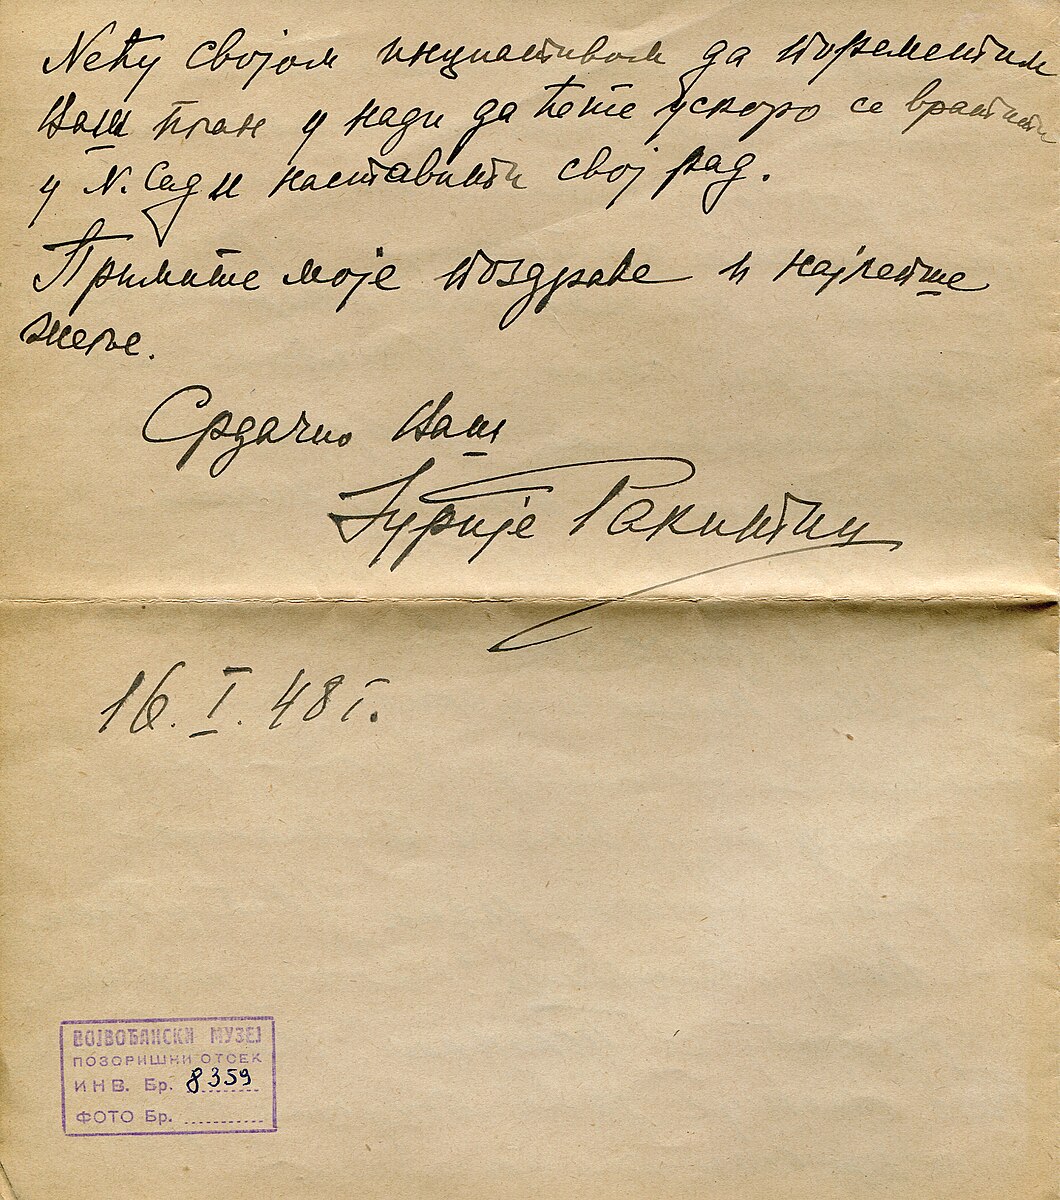 Нећу својом иницијативом да пореметим
Ваш план у нади да ћете ускоро се вратити
у Н. Сад и наставити свој рад.
Примите моје поздраве и најлепше
жеље.
Срдачно Ваш
Јурије Ракитин
16. I. 48 г.
ВОЈВОЂАНСКИ МУЗЕЈ
ПОЗОРИШНИ ОТСЕК
ИНВ. Бр. 8359
ФОТО Бр.